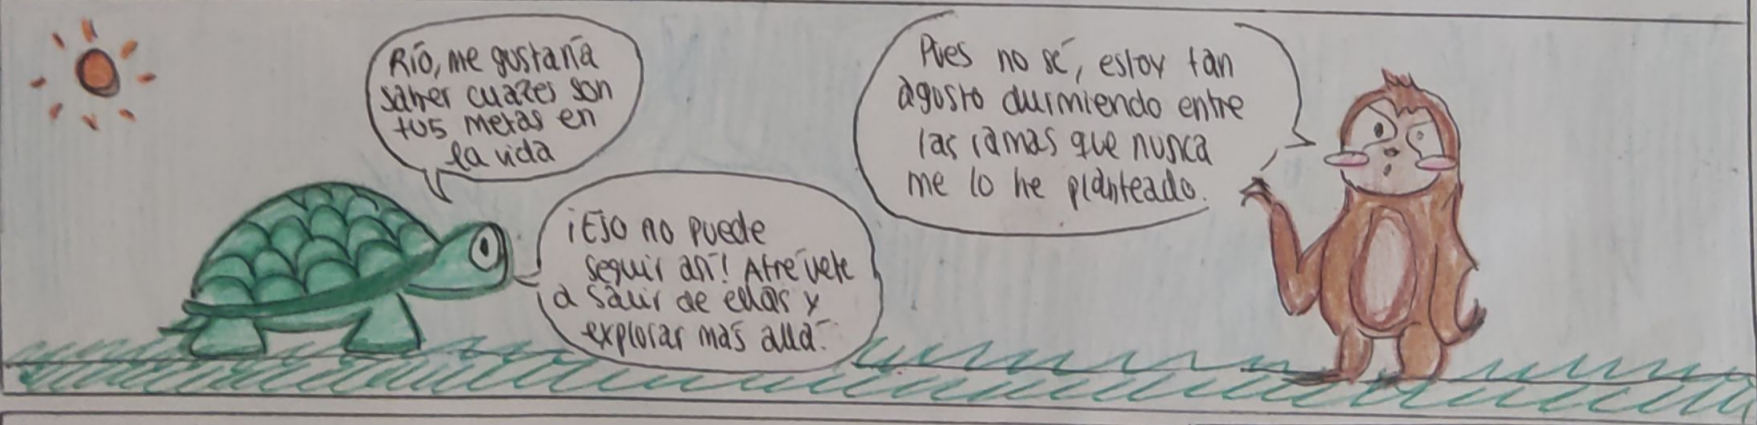 Río, me gustaría
saber cuales son
tus metas en
la vida
Pues no sé, estoy tan
agusto durmiendo entre
las ramas que nunca
me lo he planteado.
¡Eso no puede
seguir así! Atrévete
a salir de ellas y
explorar más allá.